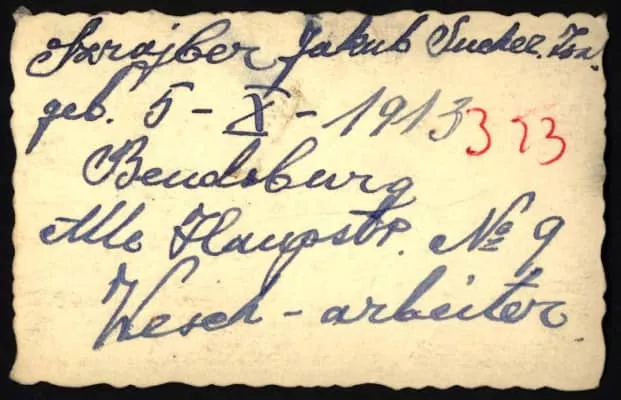 Szrajber Jakub Sucher. Isr.
geb. 5 - X - 1913 323
Bendsburg
Alte Haupstr. № 9
Wesch - arbeiter